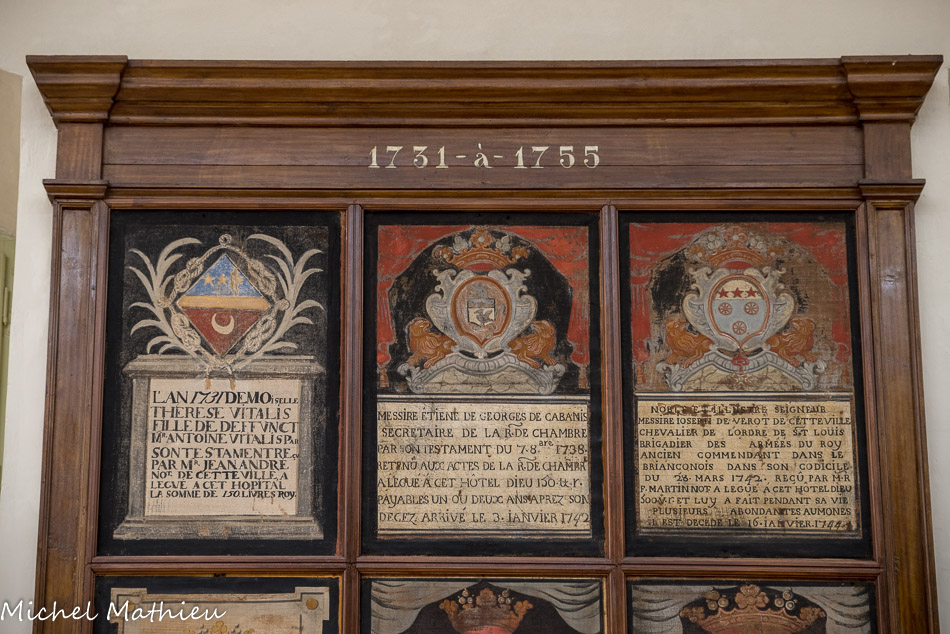 1731-à-1755
L'AN 1731 DEMOISELLE
THÉRESE VITALIS
FILLE DE DEFFUNCT
MRE ANTOINE VITALIS PAR
SON TESTAMENT REÇ
PAR MR JEAN ANDRÉ
NOR DE CETTE VILLE, A
LEGUÉ A CET HOPITAL
LA SOMME DE 150 LIVRES ROY.
MESSIRE ÉTIENE DE GEORGES DE CABANIS
SECRETAIRE DE LA DE CHAMBRE
PAR SON TESTAMENT DU 7.8bre 1738.
RETENU AUX ACTES DE LA DE CHAMBR
A LEGUÉ A CET HÔTEL DIEU
PAYABLES UN OU DEUX ANS APREZ SON
DECEZ, ARRIVÉ LE 3. IANVIER 1742
NOBLE ET ILLUSTRE SEIGNEUR
MESSIRE IOSEPH DE VEROT DE CETTE VILLE
CHEVALIER DE L'ORDRE DE S.T LOUIS
BRIGADIER DES ARMÉES DU ROY
ANCIEN COMMENDANT DANS LE
BRIANCONOIS DANS SON CODICILE
DU 26 MARS 1742. REÇU, PAR M.R
F. MARTIN NOT A LEGUÉ A CET HOTEL DIEU
ET LUY A FAIT PENDANT SA VIE
PLUSIEURS ABONDANTES AUMONES
IL EST DECEDÉ LE 16. IANVIER
Michel Mathieu